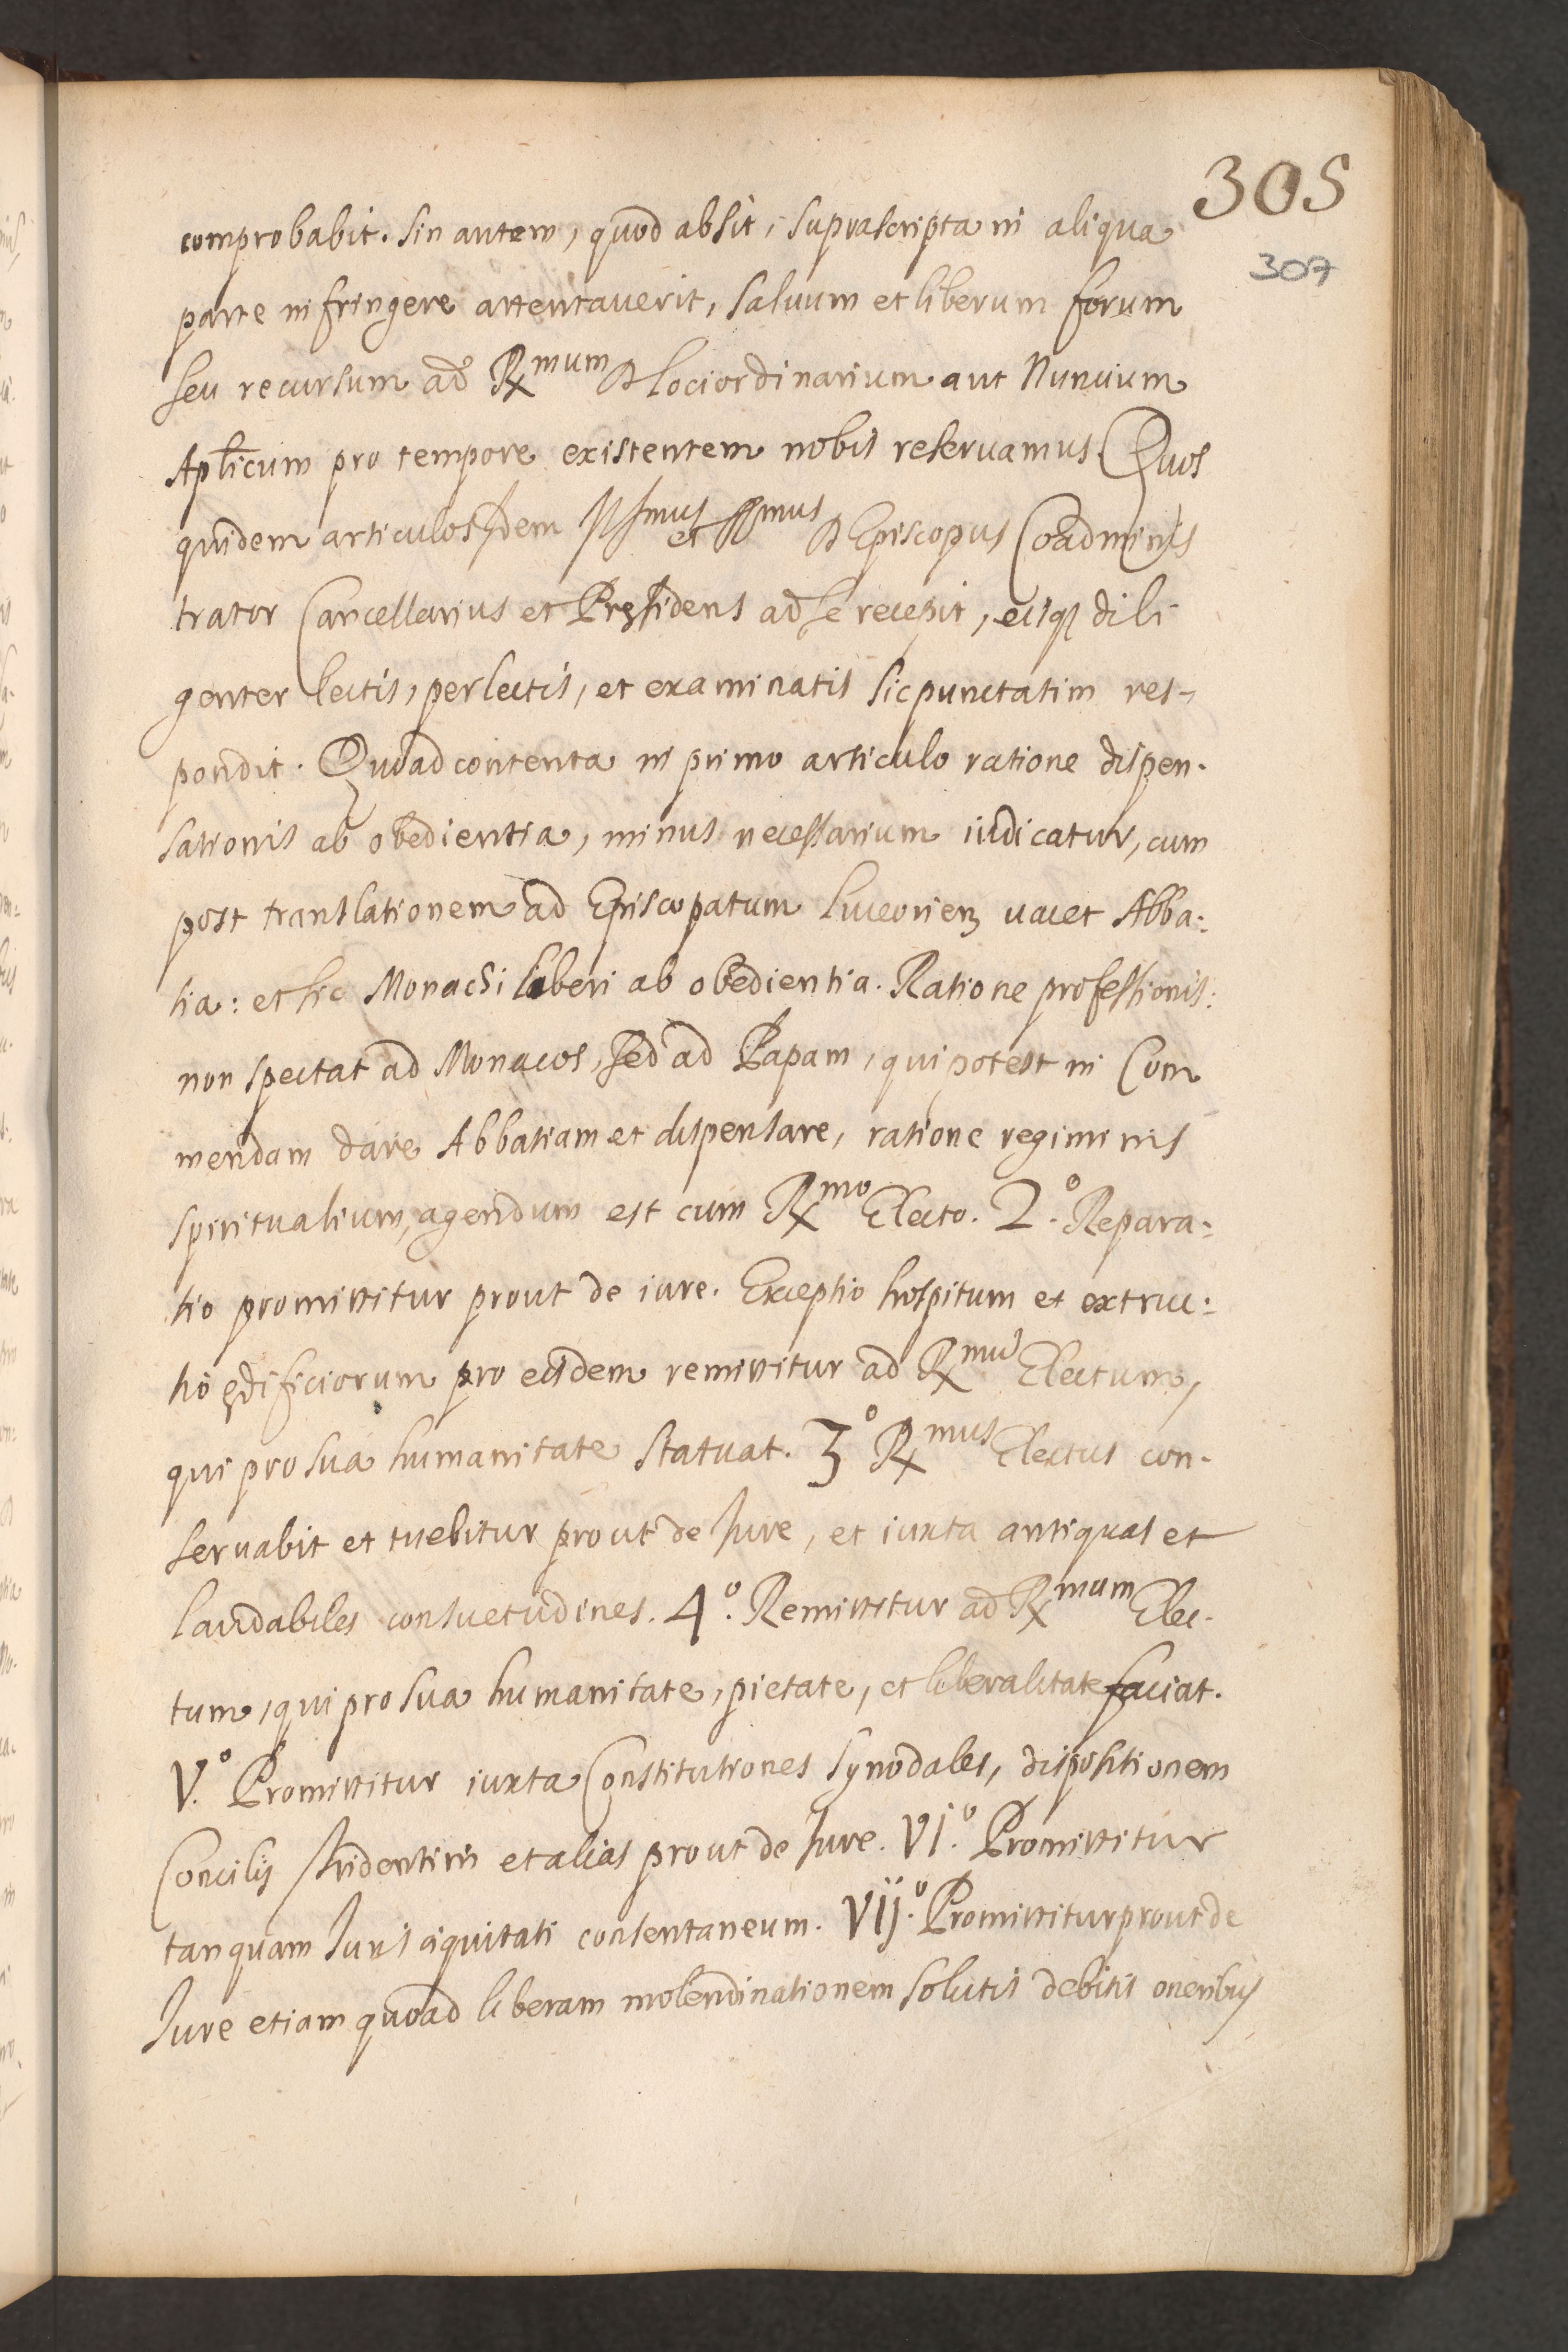 305
307
comprobabit. Sin autem, quod absit, suprascripta in aliqua
parte infringere attentaverit, salvum et liberum forum
seu recursum ad Rmum D loci ordinarium aut Nuncium
Aplicum pro tempore existentem nobis reservamus. Quos
quidem articulos Idem Illmus et Rmus D Episcopus Coadminis
trator Cancellarius et Pręsidens ad se recepit, eisq dili
genter lectis, perlectis, et examinatis sic punctatim res-
pondit. Quoad contenta in primo articulo ratione dispen-
sationis ab obedientia, minus necessarium iudicatur, cum
post translationem ad Episcopatum Luceorien vacet Abba:
tia: et sic Monachi liberi ab obedientia. Ratione professionis:
non spectat ad Monacos, sed ad Papam, qui potest in Com
mendam dare Abbatiam et dispensare, ratione regiminis
spiritualium, agendum est cum Rmo Electo. 2.o Repara:
tio promittitur prout de iure. Exceptio hospitum et extruc:
tio ędificiorum pro eisdem remittitur ad Rmu Electum,
qui pro sua humanitate statuat. 3o Rmus Electus con-
servabit et tuebitur prout de Jure, et iuxta antiquas et
laudabiles consuetudines. 4o. Remittitur ad Rmum Elec-
tum, qui pro sua humanitate, pietate, et liberalitate faciat.
V.o Promittitur iuxta Constitutiones Synodales, dispositionem
Concilij Tridentini et alias prout de Jure. VI.o Promittitur
tanquam Juris aequitati consentaneum. VIJ.o Promittitur prout de
Jure etiam quoad liberam molendinationem solutis debitis oneribus